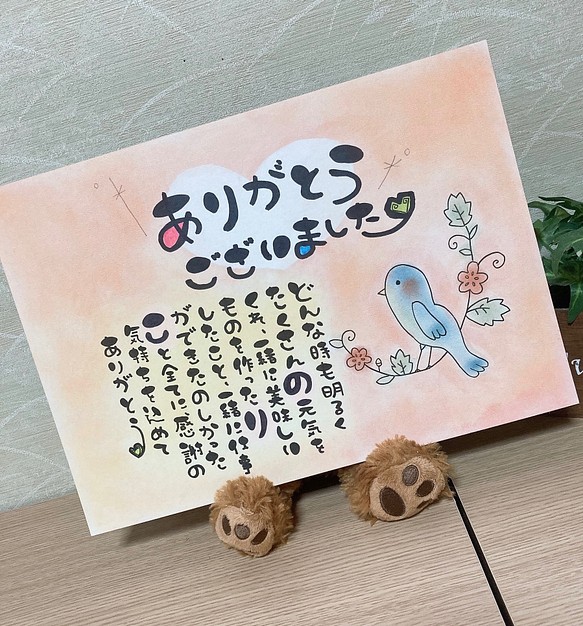 ありがとう
ございました
どんな時も明るく
たくさんの元気を
くれ、一緒に美味しい
ものを作ったり
したこと、一緒に仕事
ができたのしかった
こと全てに感謝の
気持ちを込めて
ありがとう